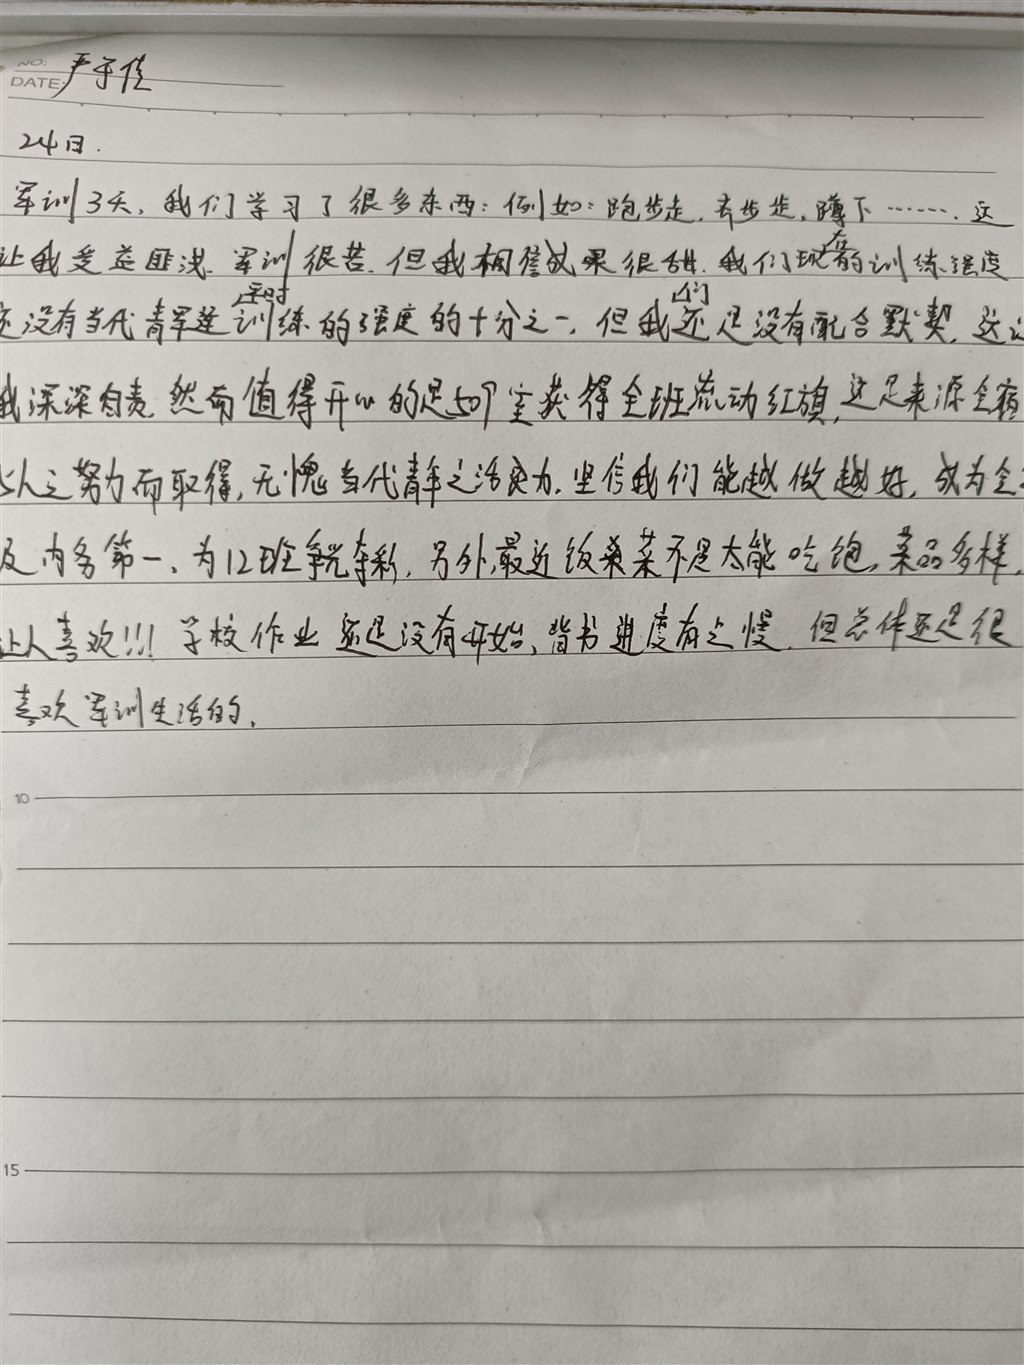 NO:
DATE: 严子佳
24日.
军训3天，我们学习了很多东西：例如：跑步走，齐步走，蹲下……，这
让我受益匪浅．军训很苦，但我相信成果很甜．我们现在的训练强度
还没有当代青军连平时训练的强度的十分之一，但我们还是没有配合默契，这让
我深深自责．然而值得开心的是509室获得全班流动红旗，这是来源全宿
5人之努力而取得，无愧当代青年之活力．坚信我们能越做越好，成为全
及内务第一、为12班争光夺彩．另外，最近饭菜不是太能吃饱，菜品多样，
让人喜欢!!! 学校作业还是没有开始，背书进度有之慢．但总体还是很
喜欢军训生活的．
10
15